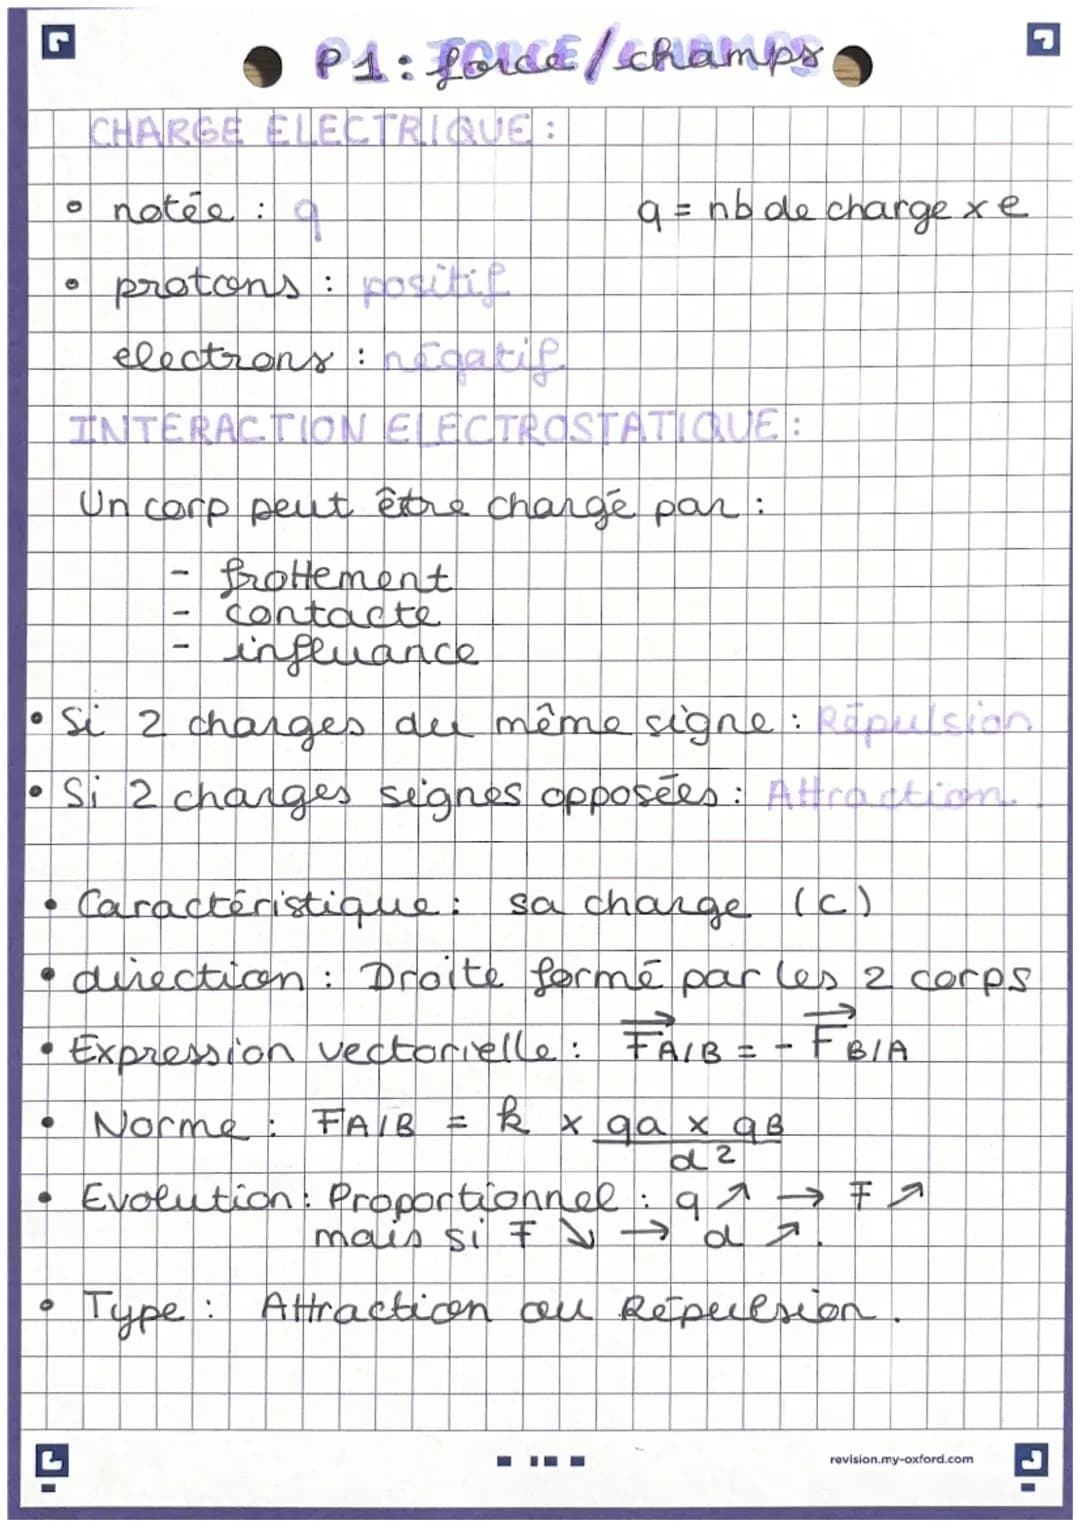 P1 : force / champs
CHARGE ELECTRIQUE :
• notée : q    q = nb de charge x e
• protons : positif
electrons : négatif
INTERACTION ELECTROSTATIQUE :
Un corp peut être chargé par :
- frottement
- contacte
- influance
• Si 2 charges du même signe : Répulsion
• Si 2 charges signes opposées : Attraction.
• Caractéristique : sa charge (C)
• direction : Droite formé par les 2 corps
• Expression vectorielle : F⃗A/B = - F⃗B/A
• Norme : FA/B = k x qa x qB
d²
• Evolution : Proportionnel : q ↗ → F ↗
mais si F ↘ → d ↗.
• Type : Attraction ou Répulsion.
revision.my-oxford.com